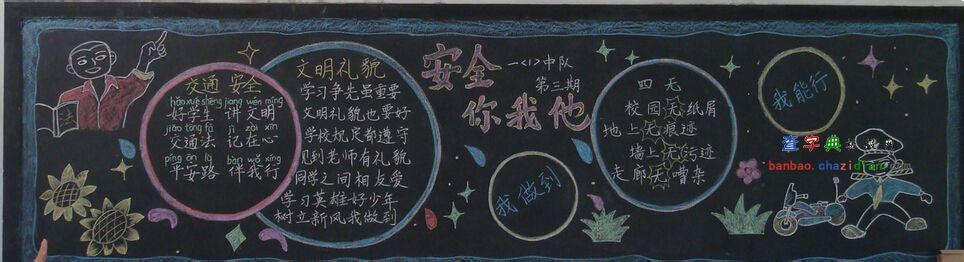 法
交通 安全
hǎo xué shēng jiǎng wén míng
好学生 讲文明
jiāo tōng fǎ jì zài xīn
交通法 记在心
píng ān lù bàn wǒ xíng
平安路 伴我行
文明礼貌
学习争先虽重要
文明礼貌也要好
学校规定都遵守
见到老师有礼貌
同学之间相友爱
学习英雄好少年
树立新风我做到
安全
你我他
一<1>中队
第三期
我做到
四无
校园无纸屑
地上无痕迹
墙上无污迹
走廊无嘈杂
我能行
查字典
banbao.chazidian.com